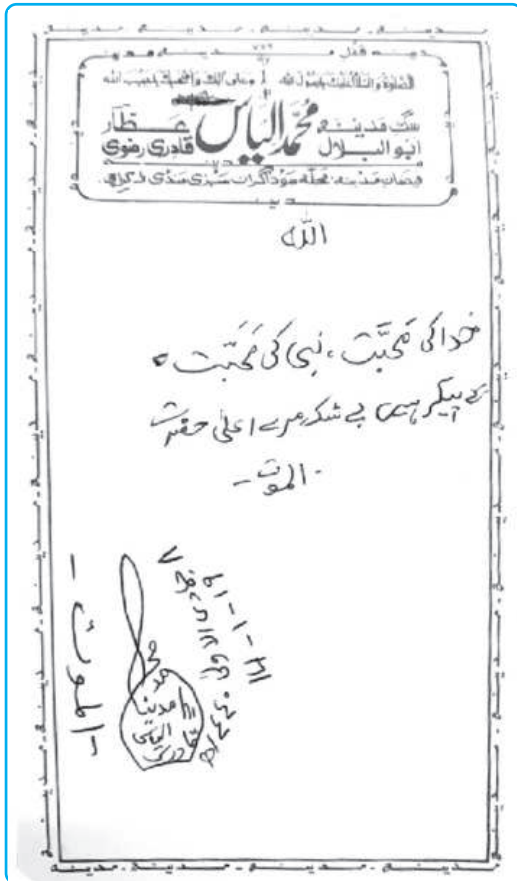 مدینہ ۷۸۶ مدینہ
الصلوۃ والسلام علیک یارسول اللہ وعلی الک واصحبک یاحبیب اللہ
سگ مدینہ محمد الیاس عطار
ابوالبلال قادری رضوی
فیضان مدینہ محلہ سوداگران سبزی منڈی کراچی
مدینہ
اللہ
خدا کی مَحَبَّت ، نبی کی مَحَبَّت
کے پیکر ہیں بے شک مرے اعلیٰ حضرت
الموت
الموت